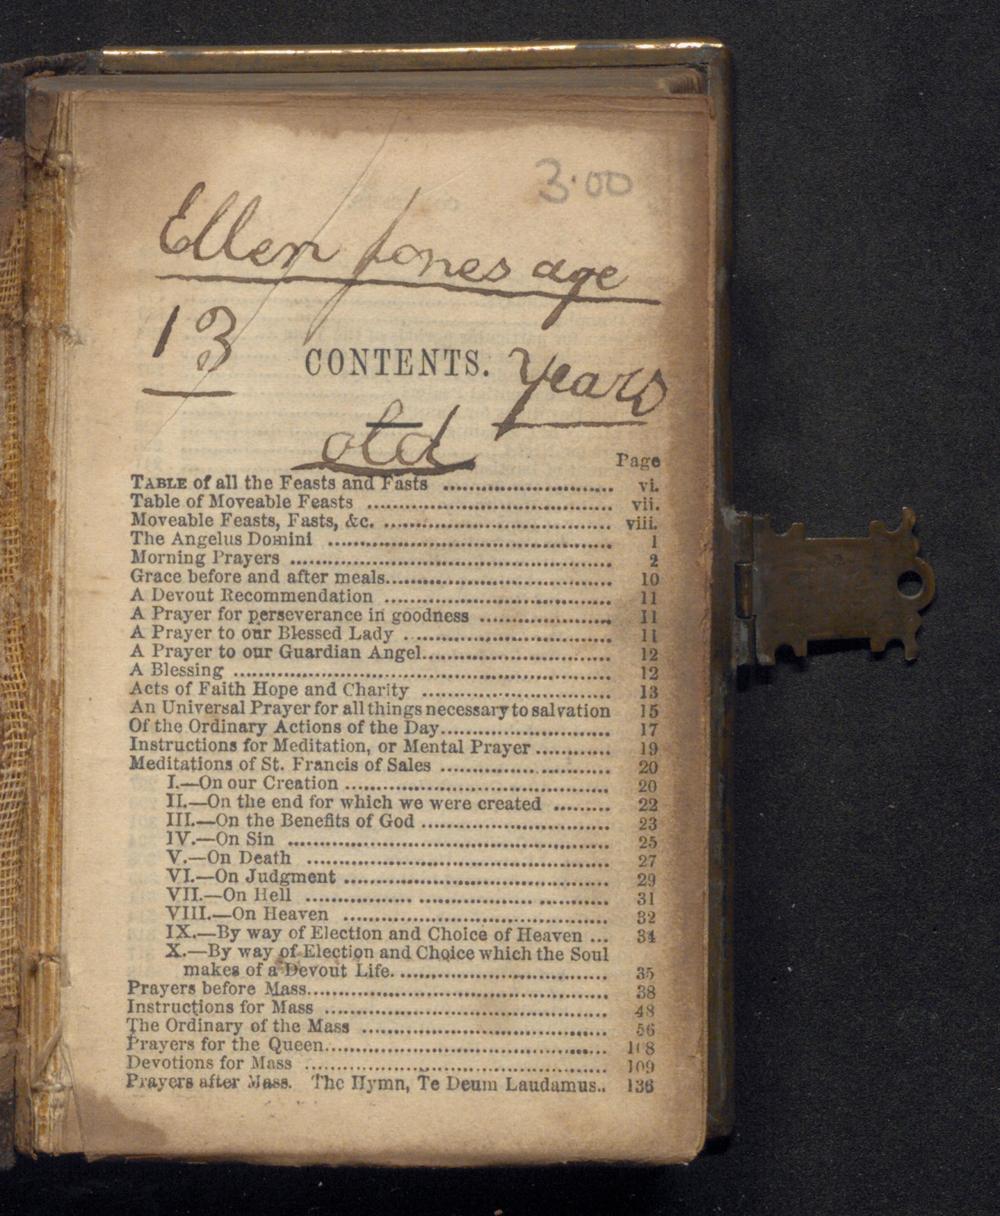 3.00
Ellen Jones age
13
CONTENTS. years
old
Page
TABLE of all the Feasts and Fasts .......................... vi.
Table of Moveable Feasts ..................................... vii.
Moveable Feasts, Fasts, &c. .................................. viii.
The Angelus Domini .......................................... 1
Morning Prayers ................................................ 2
Grace before and after meals.................................. 10
A Devout Recommendation .................................... 11
A Prayer for perseverance in goodness .................... 11
A Prayer to our Blessed Lady ................................ 11
A Prayer to our Guardian Angel............................. 12
A Blessing ......................................................... 12
Acts of Faith Hope and Charity ............................. 13
An Universal Prayer for all things necessary to salvation 15
Of the Ordinary Actions of the Day.......................... 17
Instructions for Meditation, or Mental Prayer ........... 19
Meditations of St. Francis of Sales .......................... 20
I.—On our Creation ........................................ 20
II.—On the end for which we were created ......... 22
III.—On the Benefits of God ............................. 23
IV.—On Sin ................................................ 25
V.—On Death .............................................. 27
VI.—On Judgment ........................................ 29
VII.—On Hell .............................................. 31
VIII.—On Heaven ........................................ 32
IX.—By way of Election and Choice of Heaven ... 34
X.—By way of Election and Choice which the Soul
makes of a Devout Life. ................................ 35
Prayers before Mass.............................................. 38
Instructions for Mass ........................................... 48
The Ordinary of the Mass ..................................... 56
Prayers for the Queen........................................... 108
Devotions for Mass .............................................. 109
Prayers after Mass. The Hymn, Te Deum Laudamus.. 136